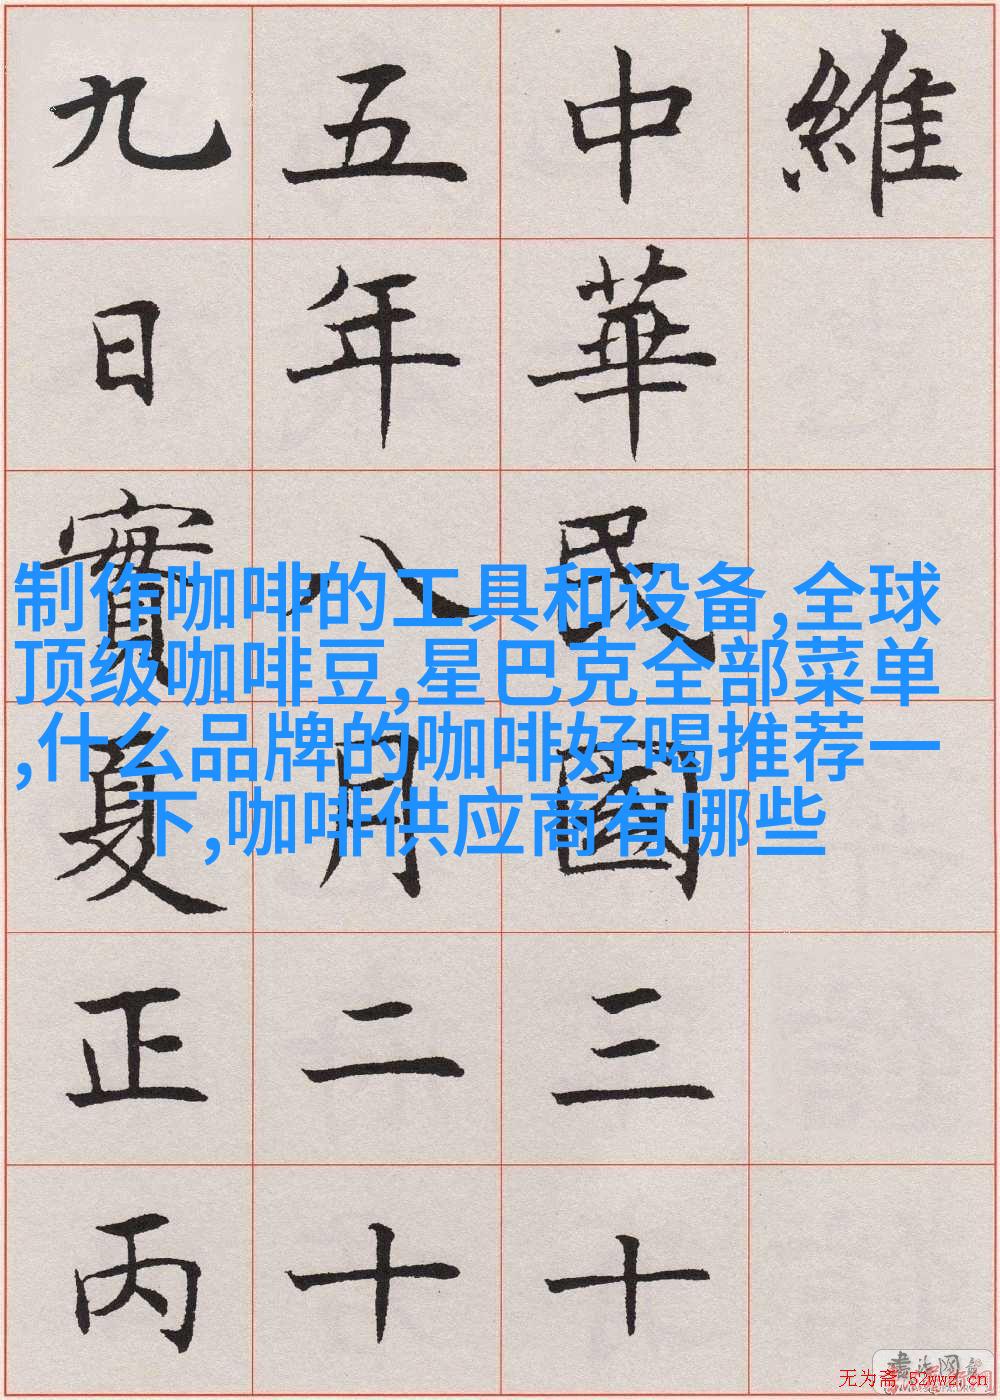 維
中華民國三十
五年八月二十
九日實夏正丙
制作咖啡的工具和设备,全球
顶级咖啡豆,星巴克全部菜单
,什么品牌的咖啡好喝推荐一
下,咖啡供应商有哪些
无为斋 52wwz.cn